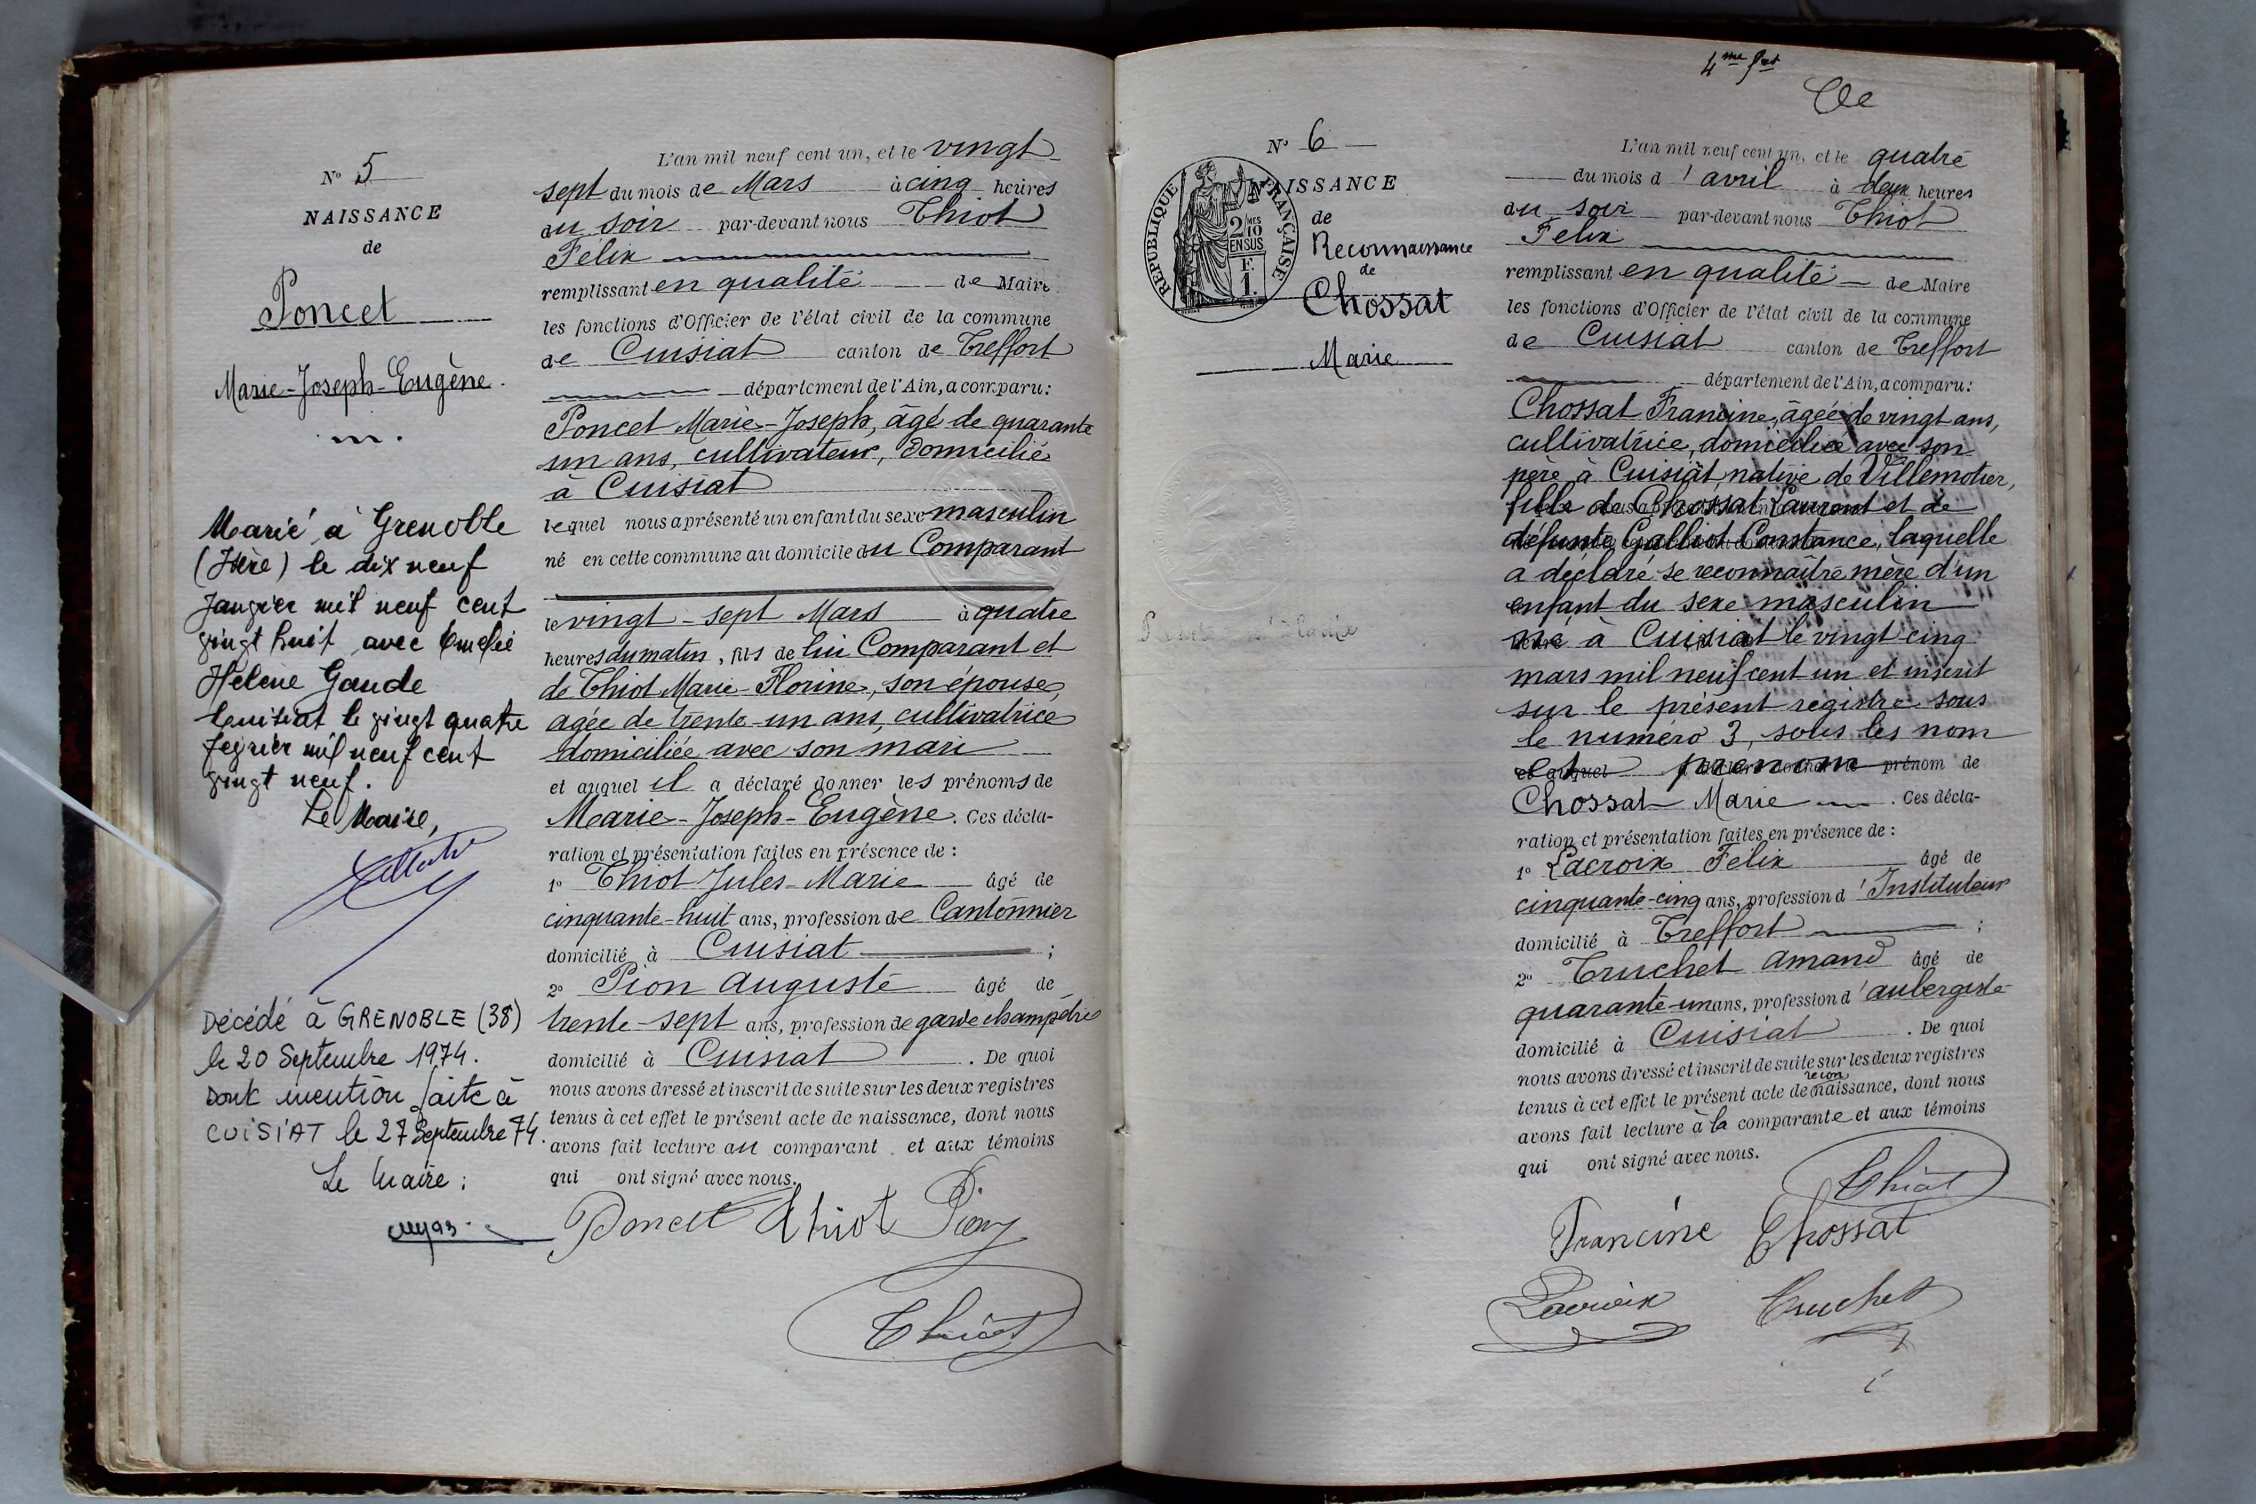 N° 5
NAISSANCE
de
Poncet
Marie-Joseph-Eugène.
m.
Marié à Grenoble
(Isère) le dix neuf
Janvier mil neuf cent
vingt huit avec Emélie
Hélène Gaude
Cuisiat le vingt quatre
février mil neuf cent
vingt neuf.
Le Maire,
Décédé à GRENOBLE (38)
le 20 Septembre 1974.
Dont mention faite à
CUISIAT le 27 Septembre 74.
Le Maire :
L'an mil neuf cent un, et le vingt
sept du mois de Mars à cinq heures
du soir par-devant nous Thiot
Félix
remplissant en qualité de Maire
les fonctions d'Officier de l'état civil de la commune
de Cuisiat canton de Treffort
département de l'Ain, a comparu :
Poncet Marie-Joseph, âgé de quarante
un ans, cultivateur, domicilié
à Cuisiat
lequel nous a présenté un enfant du sexe masculin
né en cette commune au domicile du Comparant
le vingt-sept Mars à quatre
heures du matin, fils de lui Comparant et
de Thiot Marie-Florine, son épouse,
agée de trente-un ans, cultivatrice
domiciliée avec son mari
et auquel il a déclaré donner les prénoms de
Marie-Joseph-Eugène. Ces décla-
ration et présentation faites en présence de :
1° Thiot Jules-Marie âgé de
cinquante-huit ans, profession de Cantonnier
domicilié à Cuisiat ;
2° Pion Auguste âgé de
trente-sept ans, profession de garde champêtre
domicilié à Cuisiat . De quoi
nous avons dressé et inscrit de suite sur les deux registres
tenus à cet effet le présent acte de naissance, dont nous
avons fait lecture au comparant et aux témoins
qui ont signé avec nous.
Poncet Thiot Pion
Thiot
4me
N° 6
NAISSANCE
RÉPUBLIQUE FRANÇAISE
2 MES
10
EN SUS
F.
1.
de
Reconnaissance
de
Chossat
Marie
L'an mil neuf cent un, et le quatre
du mois d'avril à deux heures
du soir par-devant nous Thiot
Félix
remplissant en qualité de Maire
les fonctions d'Officier de l'état civil de la commune
de Cuisiat canton de Treffort
département de l'Ain, a comparu :
Chossat Francine, âgée de vingt ans,
cultivatrice, domiciliée avec son
père à Cuisiat, native de Villemotier,
fille de Chossat Laurent et de
défunte Galliot Constance, laquelle
a déclaré se reconnaître mère d'un
enfant du sexe masculin
né à Cuisiat le vingt cinq
mars mil neuf cent un et inscrit
sur le présent registre sous
le numéro 3, sous les nom
et prénom prénom de
Chossat Marie . Ces décla-
ration et présentation faites en présence de :
1° Lacroix Félix âgé de
cinquante-cinq ans, profession d'Instituteur
domicilié à Treffort ;
2° Truchet Amand âgé de
quarante-un ans, profession d'aubergiste
domicilié à Cuisiat . De quoi
nous avons dressé et inscrit de suite sur les deux registres
recon
tenus à cet effet le présent acte de naissance, dont nous
avons fait lecture à la comparante et aux témoins
qui ont signé avec nous.
Thiot
Francine Chossat
Lacroix Truchet